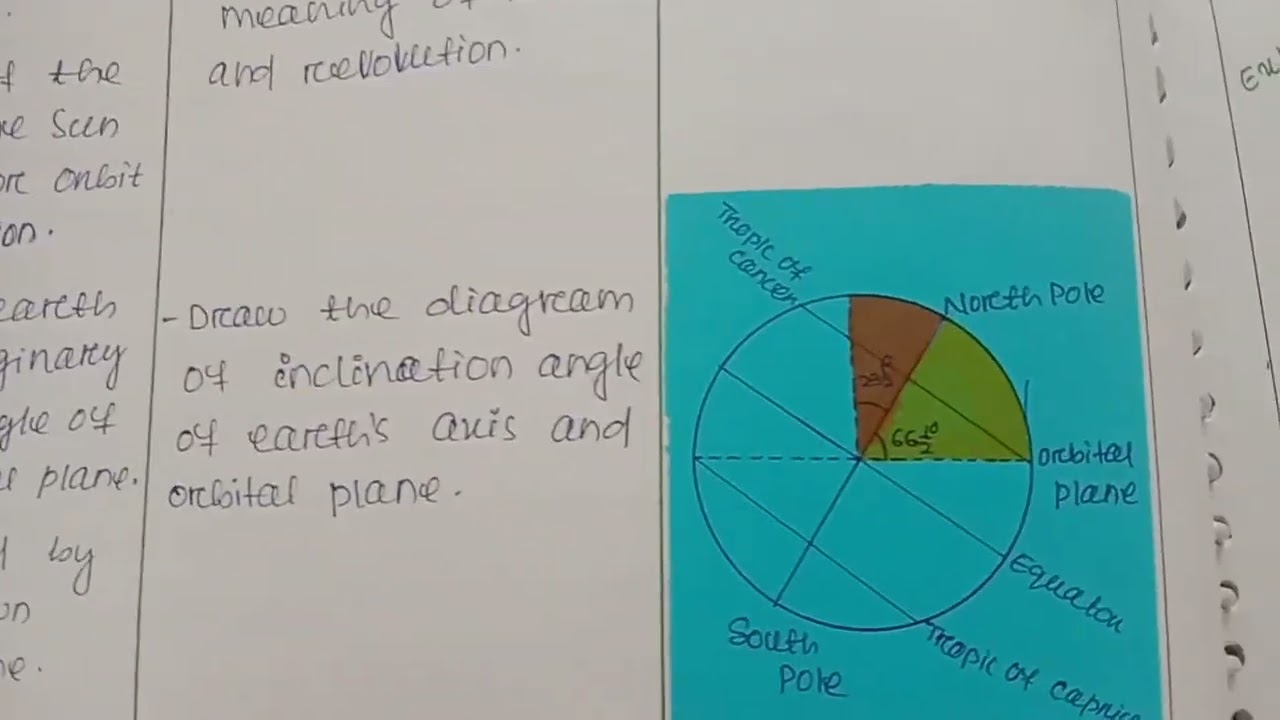 meaning
and revolution.
f the
seen
orbit
on.
earth
ginary
gle of
plane.
by
on
- Draw the diagram
of inclination angle
of earth's axis and
orbital plane.
Tropic of
cancer
North Pole
66 1/2°
orbital
plane
Equator
Tropic of capric
South
Pole